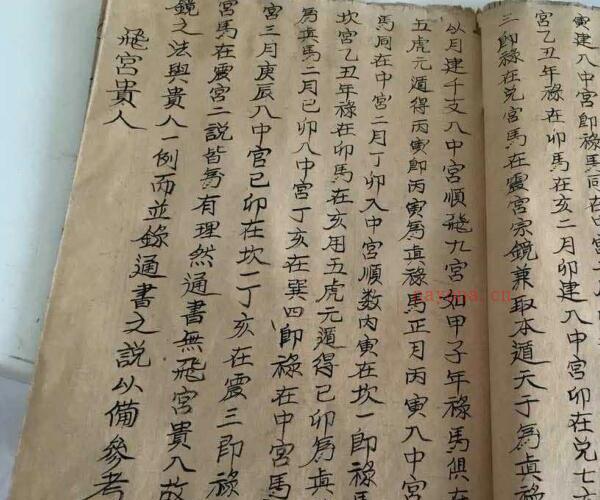 寅建入中宮即祿馬同在中
宮乙丑年祿在卯馬在亥二月卯建入中宮卯在兌七
三即祿在兌宮馬在震宮宗鏡兼取本遁天干為真
以月建干支入中宮順飛九宮如甲子年祿馬俱在
五虎元遁得丙寅即丙寅為真祿馬正月丙寅入中
馬同在中宮二月丁卯入中宮順数丙寅在坎一即祿
坎宮乙丑年祿在卯馬在亥用五虎元遁得己卯為真
為真馬二月己卯入中宮丁亥在巽四即祿在中宮馬
宮三月庚辰入中宮己卯在坎一丁亥在震三即祿
宮馬在震宮二說皆為有理然通書無飛宮貴人故
鏡之法與貴人一例而並錄通書之說以備參考
飛宮貴人